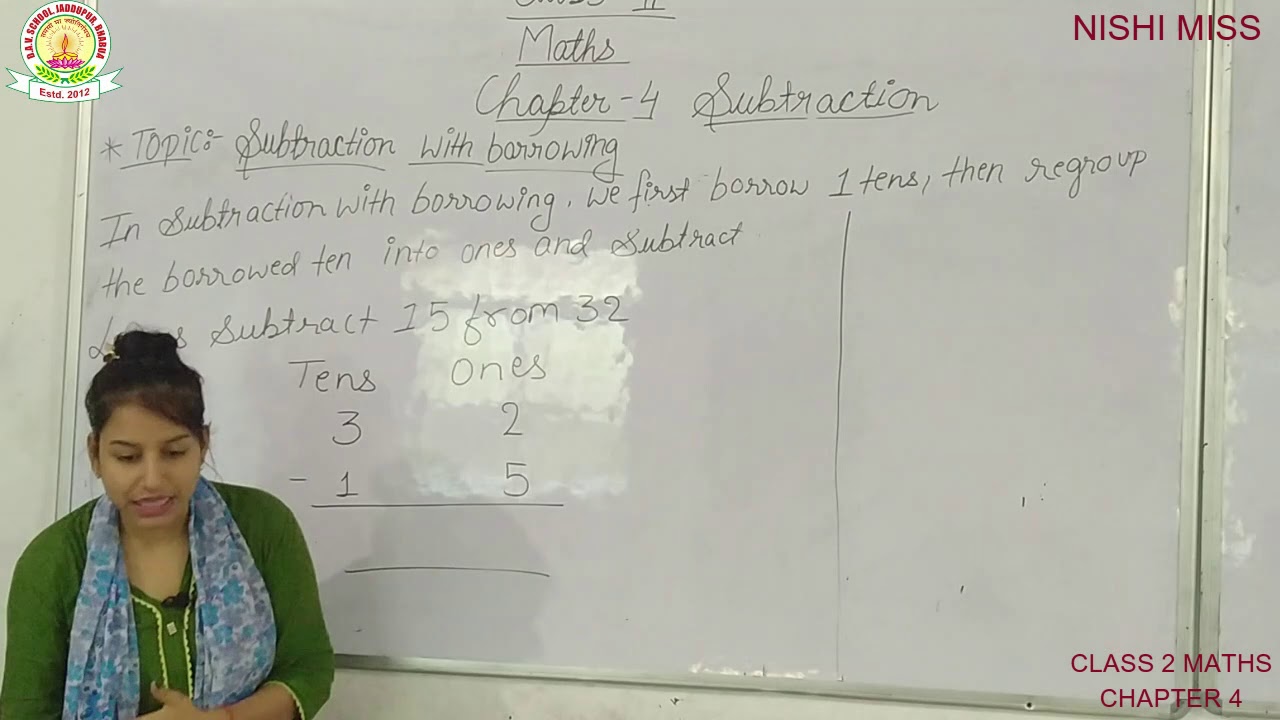 D.A.V. SCHOOL, JADDUPUR, BHABUA
Estd. 2012
NISHI MISS
Class - II
Maths
Chapter-4 Subtraction
* Topic:- Subtraction with borrowing
In Subtraction with borrowing, we first borrow 1 tens, then regroup
the borrowed ten into ones and Subtract
Subtract 15 from 32
Tens Ones
3 2
- 1 5
CLASS 2 MATHS
CHAPTER 4